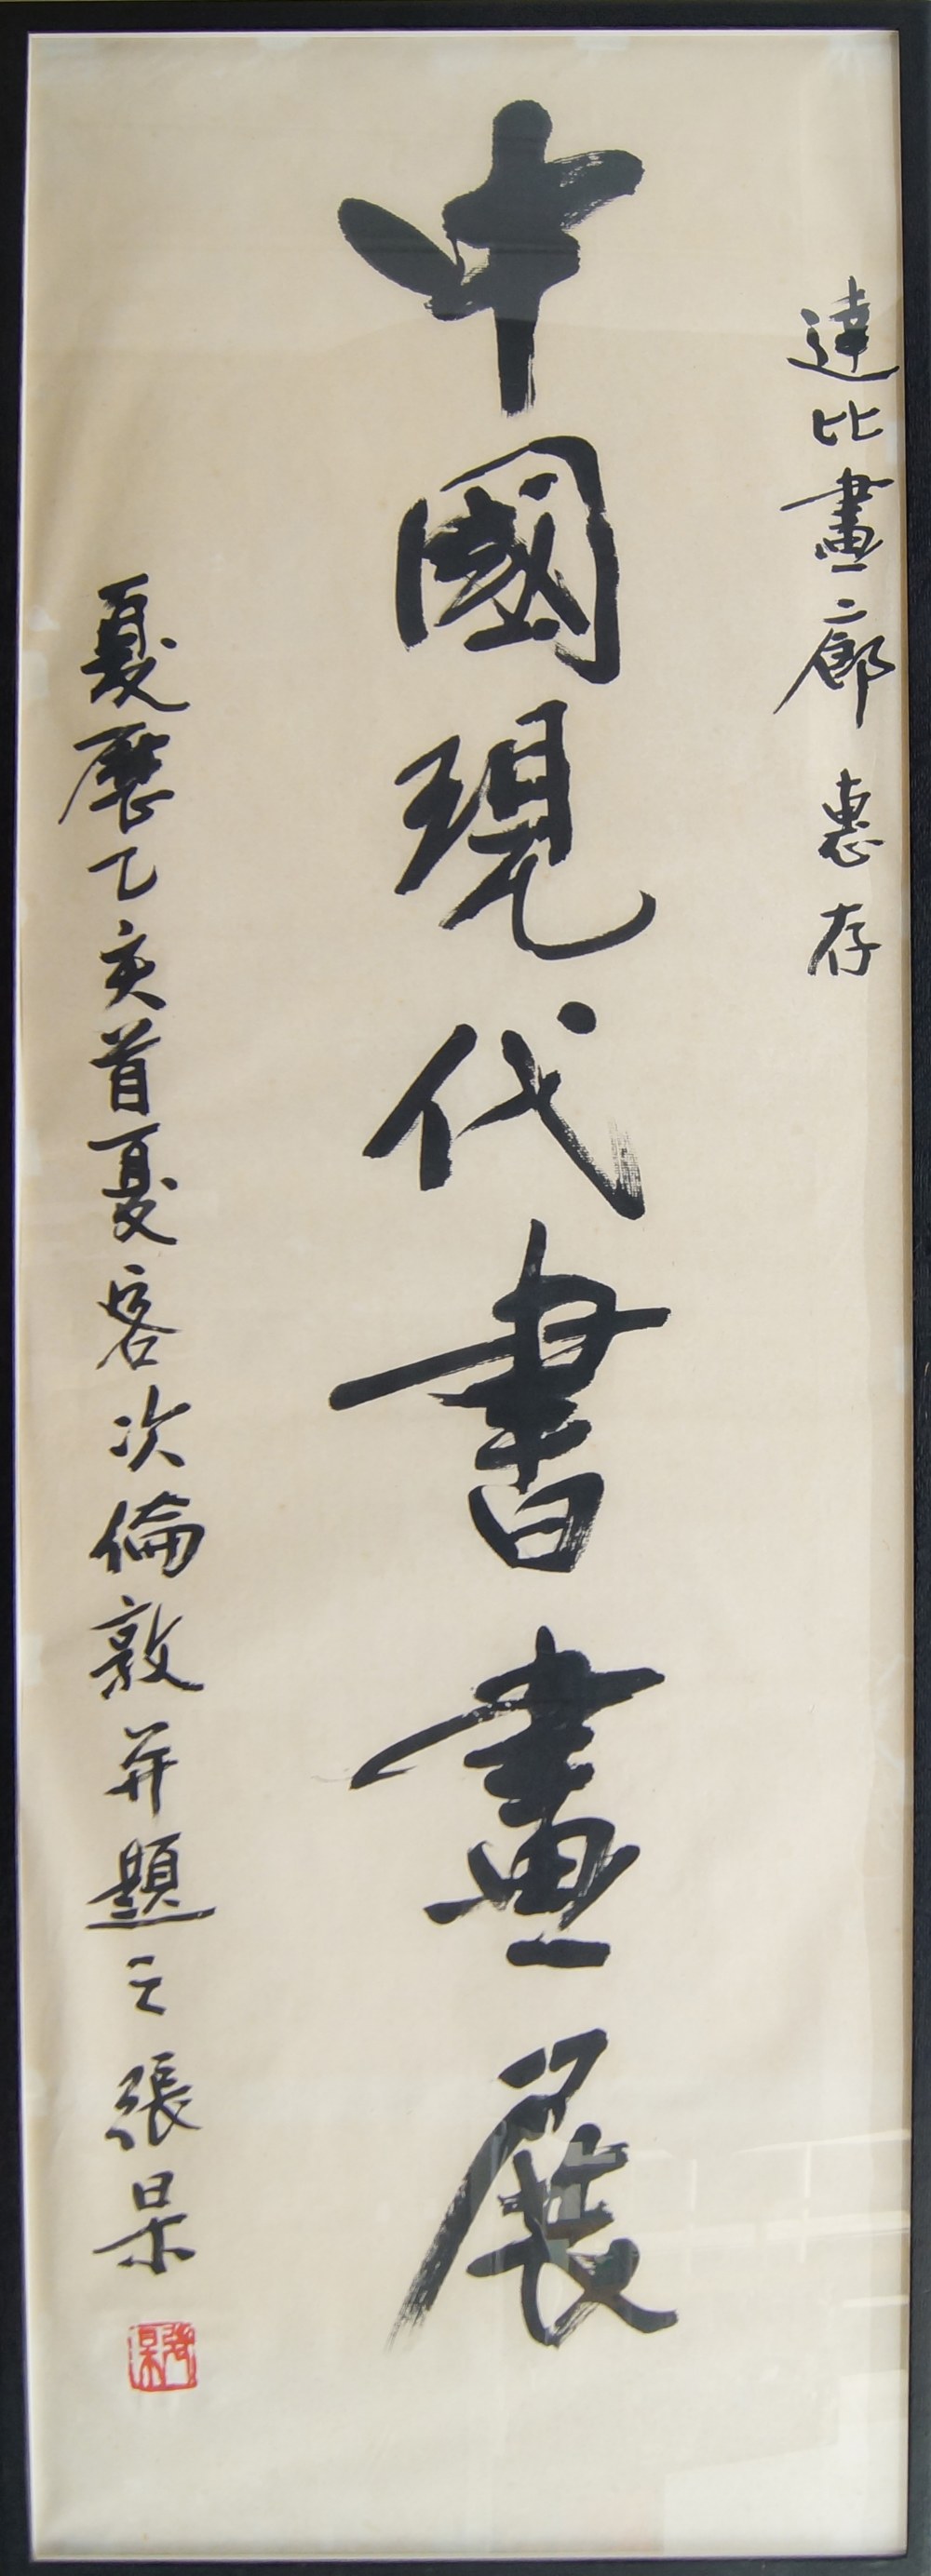 達比畫廊 惠存
中國現代書畫展
夏曆乙亥首夏客次倫敦并題之 張杲